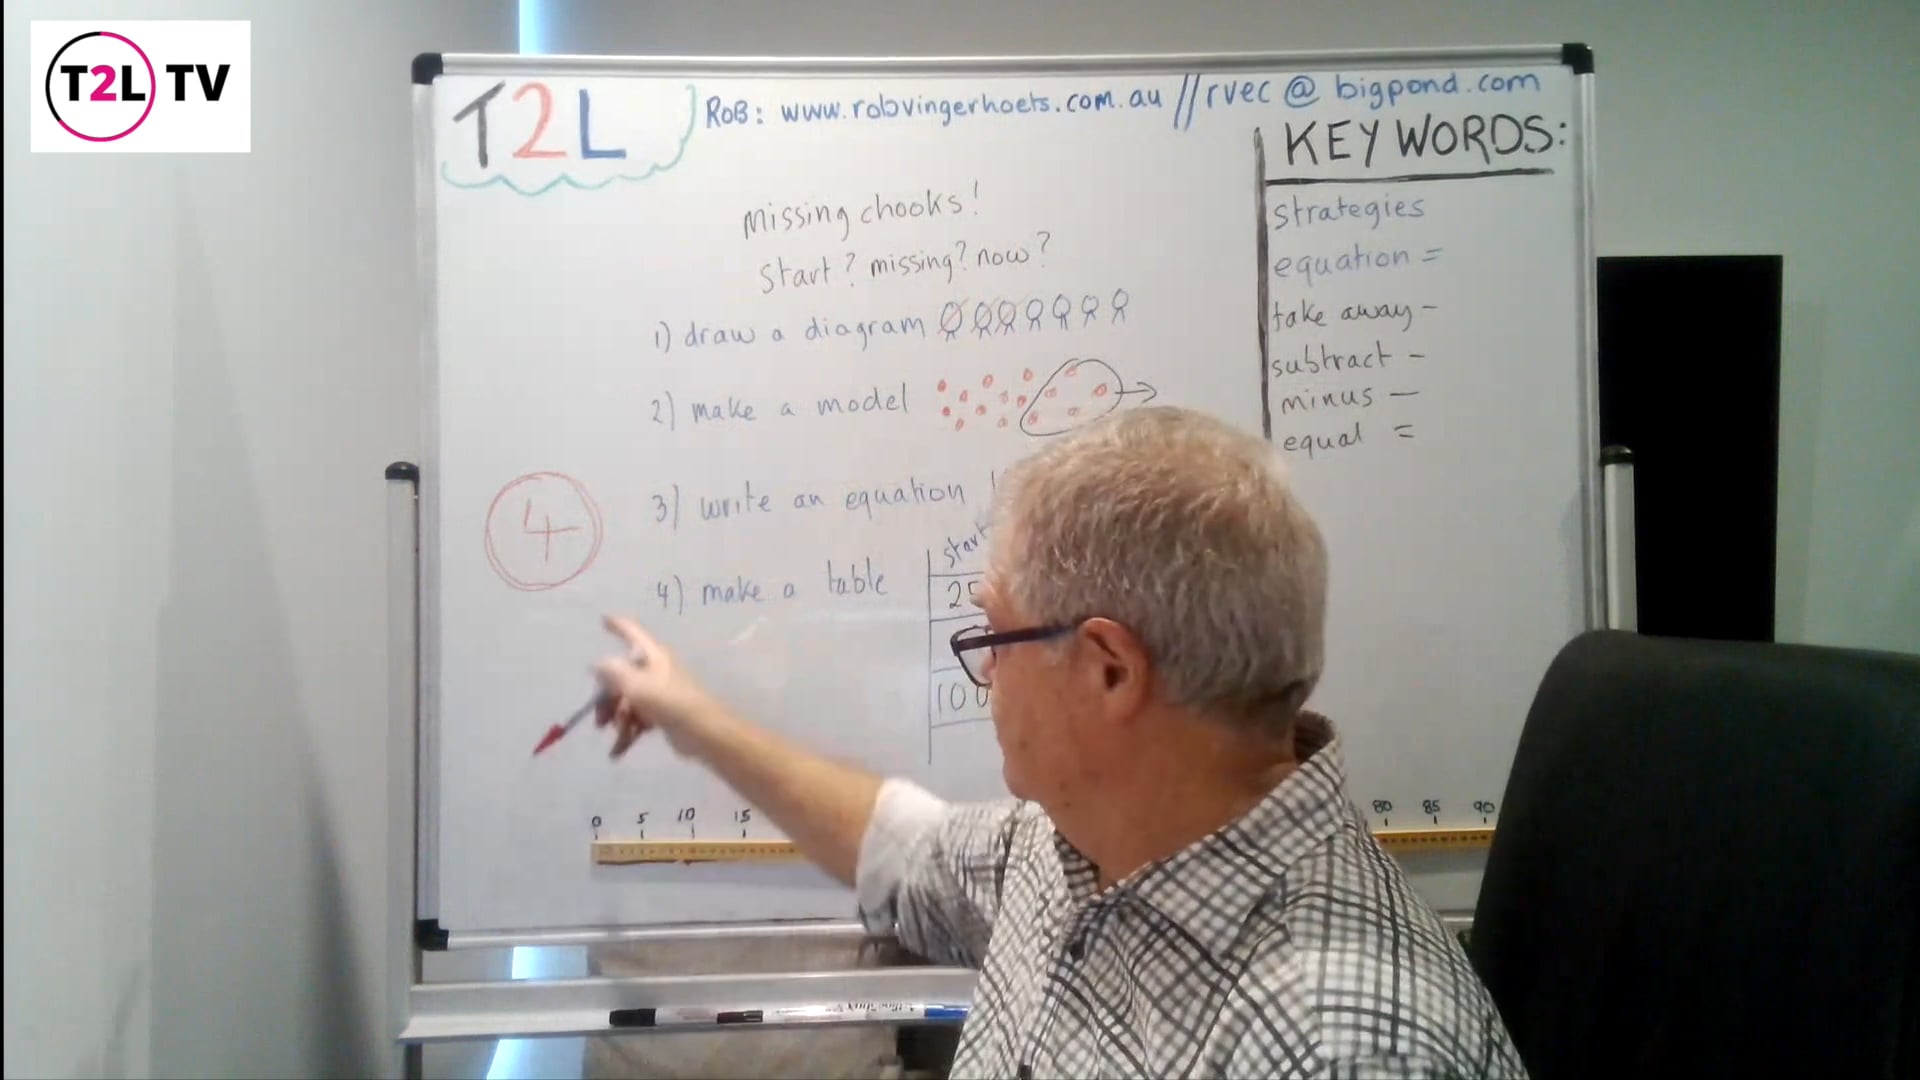 T2L TV
T2L
ROB: www.robvingerhoets.com.au // rvec @ bigpond.com
KEY WORDS:
strategies
equation =
take away -
subtract -
minus -
equal =
missing chooks!
start? missing? now?
1) draw a diagram
2) make a model
3) write an equation
4) make a table
4
start
25
100
0 5 10 15
80 85 90